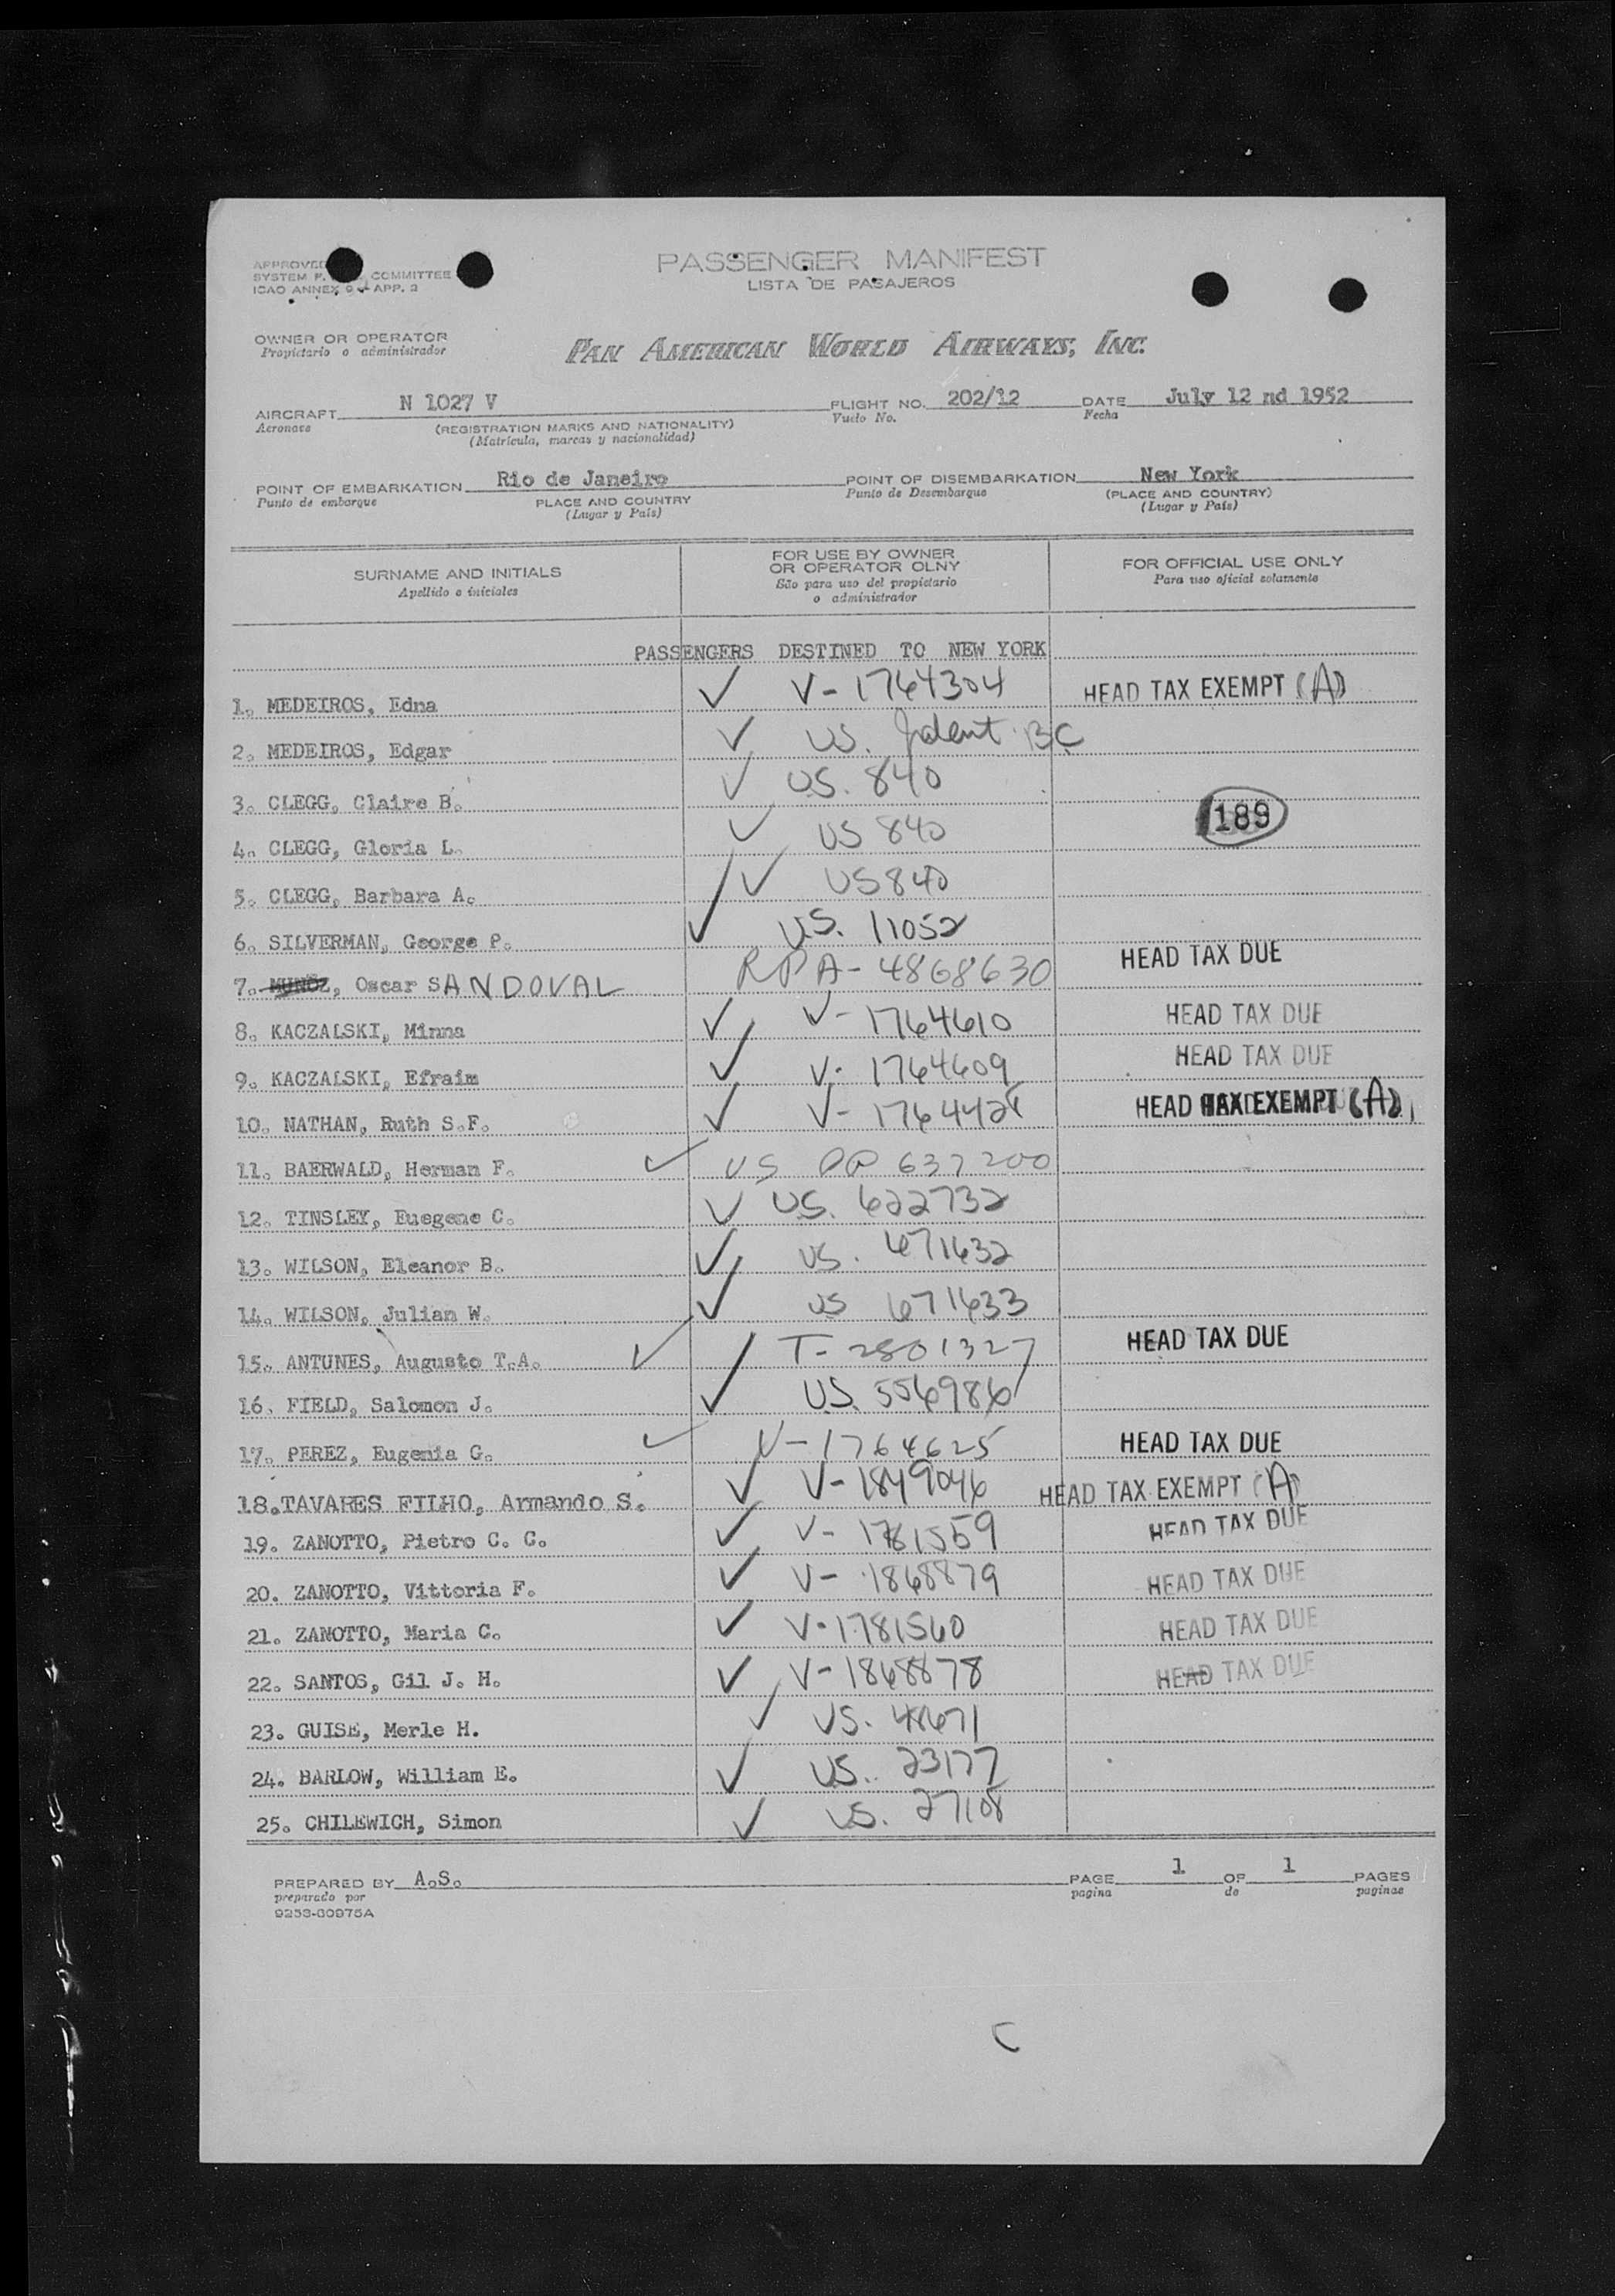 PASSENGER MANIFEST
LISTA DE PASAJEROS
APPROVED
SYSTEM F. COMMITTEE
ICAO ANNEX 9 APP. 2
OWNER OR OPERATOR
Propietario o administrador
PAN AMERICAN WORLD AIRWAYS, INC.
AIRCRAFT N 1027 V FLIGHT NO. 202/12 DATE July 12 nd 1952
Aeronave (REGISTRATION MARKS AND NATIONALITY) Vuelo No. Fecha
(Matrícula, marcas y nacionalidad)
POINT OF EMBARKATION Rio de Janeiro POINT OF DISEMBARKATION New York
Punto de embarque PLACE AND COUNTRY Punto de Desembarque (PLACE AND COUNTRY)
(Lugar y País) (Lugar y País)
SURNAME AND INITIALS FOR USE BY OWNER OR OPERATOR OLNY FOR OFFICIAL USE ONLY
Apellido e iniciales São para uso del propietario o administrador Para uso oficial solamente
PASSENGERS DESTINED TO NEW YORK
1. MEDEIROS, Edna ✓ V-1764304 HEAD TAX EXEMPT (A)
2. MEDEIROS, Edgar ✓ US. Ident BC
3. CLEGG, Claire B. ✓ U.S. 840
189
4. CLEGG, Gloria L. ✓ US 840
5. CLEGG, Barbara A. ✓ US 840
6. SILVERMAN, George P. ✓ U.S. 11052
7. MUNOZ, Oscar SANDOVAL RPA-4868630 HEAD TAX DUE
8. KACZALSKI, Minna ✓ V-1764610 HEAD TAX DUE
9. KACZALSKI, Efraim ✓ V-1764609 HEAD TAX DUE
10. NATHAN, Ruth S.F. ✓ V-1764428 HEAD TAX EXEMPT (A)
11. BAERWALD, Herman F. ✓ US PP 637200
12. TINSLEY, Euegene C. ✓ U.S. 622732
13. WILSON, Eleanor B. ✓ US. 671632
14. WILSON, Julian W. ✓ US 671633
15. ANTUNES, Augusto T.A. ✓ T-2801327 HEAD TAX DUE
16. FIELD, Salomon J. ✓ U.S. 556986
17. PEREZ, Eugenia G. ✓ V-1764625 HEAD TAX DUE
18. TAVARES FILHO, Armando S. ✓ V-1849046 HEAD TAX EXEMPT (A)
19. ZANOTTO, Pietro C. C. ✓ V-1781559 HEAD TAX DUE
20. ZANOTTO, Vittoria F. ✓ V-1868879 HEAD TAX DUE
21. ZANOTTO, Maria C. ✓ V-1781560 HEAD TAX DUE
22. SANTOS, Gil J. H. ✓ V-1868878 HEAD TAX DUE
23. GUISE, Merle H. ✓ US. 48671
24. BARLOW, William E. ✓ U.S. 23177
25. CHILEWICH, Simon ✓ U.S. 27108
PREPARED BY A.S. PAGE 1 OF 1 PAGES
preparado por pagina de paginas
9253-60975A